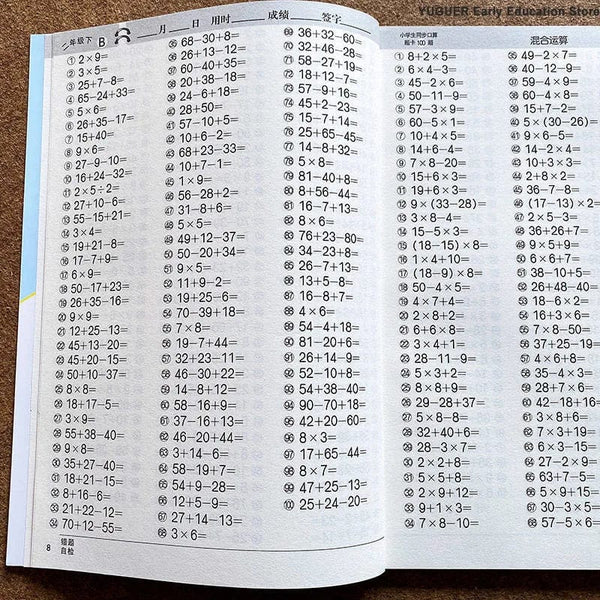 YUGUER Early Education Store
二年级下 B 月 日 用时 成绩 签字
① 2×9=
② 3×5=
③ 25+7−8=
④ 65−24+33=
⑤ 5×6=
⑥ 26+35−17=
⑦ 15+40=
⑧ 9×6=
⑨ 27−9−10=
⑩ 16+24−32=
⑪ 2×5÷2=
⑫ 27+10−6=
⑬ 55−15+21=
⑭ 3×4=
⑮ 19+21−8=
⑯ 17−7+9=
⑰ 6×9=
⑱ 50−17+23=
⑲ 26+35−16=
⑳ 9×9=
㉑ 12+25−13=
㉒ 45+13−20=
㉓ 45+20−15=
㉔ 50+10−37=
㉕ 8×8=
㉖ 18+17−5=
㉗ 3×9=
㉘ 55+38−40=
㉙ 9×8=
㉚ 35+27−40=
㉛ 18+21−15=
㉜ 8+16−6=
㉝ 21+22−12=
㉞ 70+12−55=
㉟ 68−30+8=
㊱ 26+13−12=
㊲ 60−40+35=
㊳ 20+38−18=
㊴ 24−6+18=
㊵ 28+50=
㊶ 57−10+5=
㊷ 10+6−2=
㊸ 68+23−33=
㊹ 10+7−1=
㊺ 1×9=
㊻ 56−28+2=
㊼ 31−8+6=
㊽ 5×5=
㊾ 49+12−37=
㊿ 50−20+34=
51 9×5=
52 11+9−2=
53 19+25−6=
54 70−39+18=
55 7×8=
56 19−7+44=
57 32+23−11=
58 46−30+22=
59 14−8+12=
60 58−16+9=
61 37−16+13=
62 46−20+44=
63 3+14−6=
64 58−19+7=
65 54+9−28=
66 12+5−9=
67 27+14−13=
68 3×6=
69 36+32−60=
70 32+46−28=
71 58−27+19=
72 18+12−7=
73 57−9+16=
74 45+2−23=
75 15−7+14=
76 25+65−45=
77 14−8+32=
78 5×8=
79 81−40+8=
80 8+56−44=
81 16−7+13=
82 8×6=
83 76+23−80=
84 34−23+8=
85 26−7+13=
86 13+5−8=
87 16−8+7=
88 4×6=
89 54−4+18=
90 81−20+6=
91 26+14−9=
92 52−10+8=
93 54+38−40=
94 90−70+18=
95 42+20−60=
96 8×3=
97 17+65−44=
98 8×7=
99 47+25−13=
100 25+24−20=
8 错题
自检
小学生同步口算
题卡 100 题
混合运算
① 8+2×5=
② 6×4−3=
③ 45−2×6=
④ 50−11−9=
⑤ 57−3×9=
⑥ 60−5×1=
⑦ 10+4×5=
⑧ 14+6−4=
⑨ 7×8−20=
⑩ 15+6×3=
⑪ 19+6×3=
⑫ 9×(33−28)=
⑬ 3×8−4=
⑭ 15−5×3=
⑮ (18−15)×8=
⑯ 1×4+10=
⑰ (18−9)×8=
⑱ 50−4×5=
⑲ 4×7+4=
⑳ 2×8+2=
㉑ 6+6×8=
㉒ 3×4+1=
㉓ 28−11−9=
㉔ 5×3+2=
㉕ 8×8+9=
㉖ 29−28+37=
㉗ 5×8−8=
㉘ 32+40+6=
㉙ 28−3×7=
㉚ 2×2+8=
㉛ 5×5+2=
㉜ 2×9+12=
㉝ 9+1×3=
㉞ 7×8−10=
㉟ 49−2×7=
㊱ 40−12−9=
㊲ 59−4×9=
㊳ 60−8×9=
㊴ 15+7−2=
㊵ 5×(30−26)=
㊶ 9×6−5=
㊷ 14−2×4=
㊸ 10+3×3=
㊹ 2+8×2=
㊺ 36−7−8=
㊻ (17−13)×2=
㊼ 2×5−3=
㊽ 36+26+7=
㊾ 9×5+9=
㊿ 6×6−6=
51 38−10+5=
52 26+48−40=
53 18−6×2=
54 16+3×6=
55 7×8−50=
56 37+25−19=
57 4×6+8=
58 35−4×6=
59 28+7×6=
60 42−18+16=
61 3×8+6=
62 7×3+19=
63 6×6−30=
64 27−2×9=
65 63+7−5=
66 5×9+15=
67 30−3×5=
68 57−5×6=